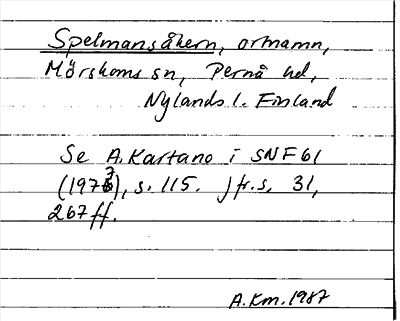 Spelmansåkern, ortnamn,
Mörskoms sn, Pernå hd,
Nylands l. Finland
Se A. Kartano i SNF 61
(1973), s. 115. Jfr s. 31,
267 ff.
A.Km. 1987